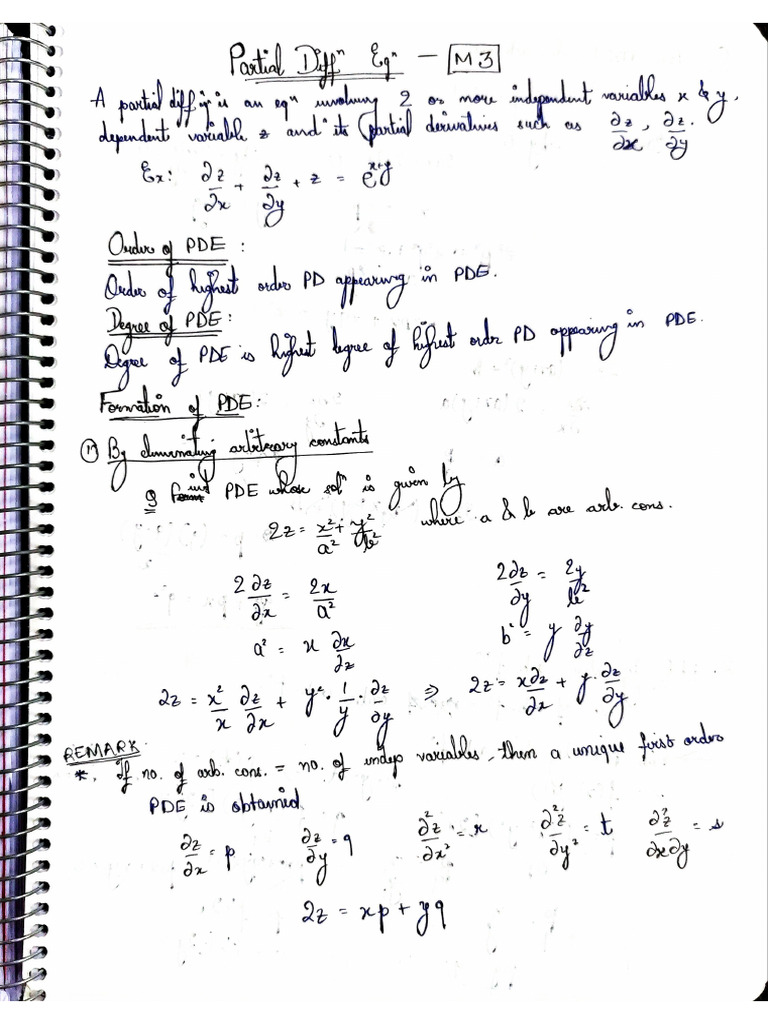 Partial Diffⁿ Eqⁿ – M3
A partial diff eqⁿ is an eqⁿ involving 2 or more independent variables x & y,
dependent variable z and its partial derivatives such as ∂z/∂x, ∂z/∂y.
Ex: ∂z/∂x + ∂z/∂y + z = e^(x+y)
Order of PDE :
Order of highest order PD appearing in PDE.
Degree of PDE :
Degree of PDE is highest degree of highest order PD appearing in PDE.
Formation of PDE :
① By eliminating arbitrary constants
Q find PDE whose solⁿ is given by
2z = x²/a² + y²/b² where a & b are arb. cons.
2 ∂z/∂x = 2x/a² 2∂z/∂y = 2y/b²
a² = x ∂x/∂z b² = y ∂y/∂z
2z = x²/x ∂z/∂x + y² · 1/y · ∂z/∂y ⇒ 2z = x∂z/∂x + y · ∂z/∂y
REMARK
*. If no. of arb. cons. = no. of indep variables, then a unique first order
PDE is obtained
∂z/∂x = p ∂z/∂y = q ∂²z/∂x² = r ∂²z/∂y² = t ∂²z/∂x∂y = s
2z = xp + yq